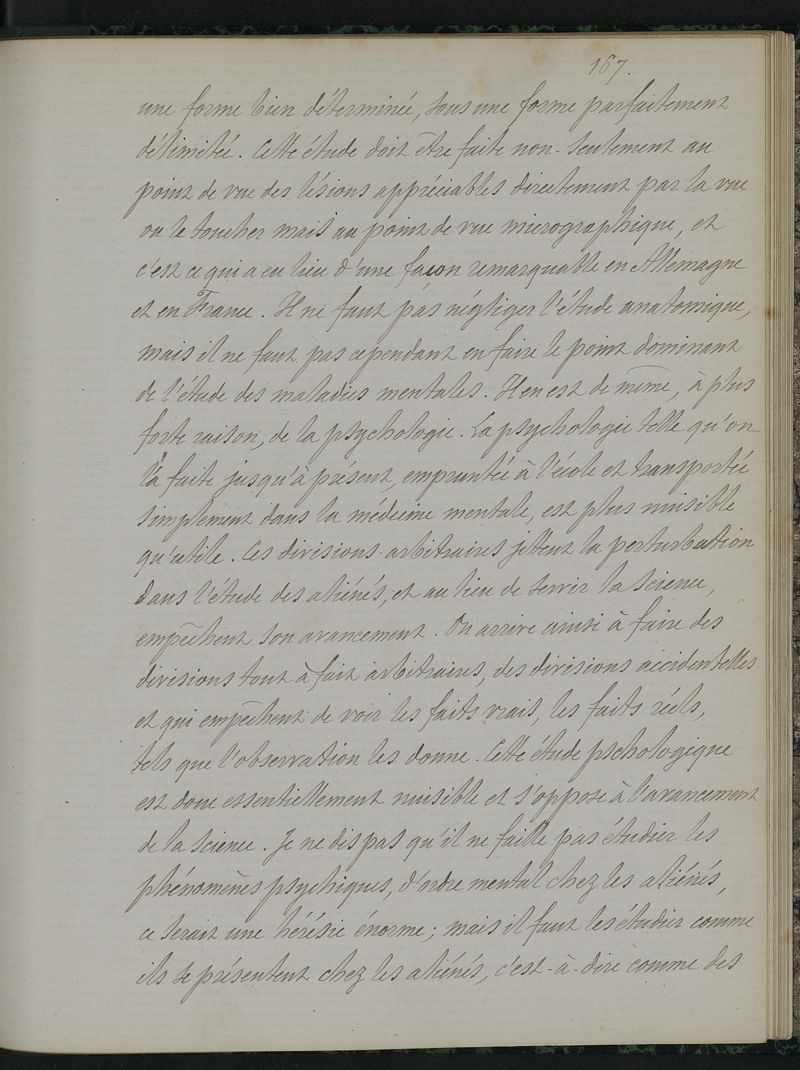 167.
une forme bien déterminée, sous une forme parfaitement
délimitée. Cette étude doit être faite non-seulement au
point de vue des lésions appréciables directement par la vue
ou le toucher mais au point de vue micrographique, et
c'est ce qui a eu lieu d'une façon remarquable en Allemagne
et en France. Il ne faut pas négliger l'étude anatomique,
mais il ne faut pas cependant en faire le point dominant
de l'étude des maladies mentales. Il en est de même, à plus
forte raison, de la psychologie. La psychologie telle qu'on
l'a faite jusqu'à présent, empruntée à l'école et transportée
simplement dans la médecine mentale, est plus nuisible
qu'utile. Ces divisions arbitraires jettent la perturbation
dans l'étude des aliénés, et au lieu de servir la science,
empêchent son avancement. On arrive ainsi à faire des
divisions tout à fait arbitraires, des divisions accidentelles
et qui empêchent de voir les faits vrais, les faits réels,
tels que l'observation les donne. Cette étude pschologique
est donc essentiellement nuisible et s'oppose à l'avancement
de la science. Je ne dis pas qu'il ne faille pas étudier les
phénomènes psychiques, d'ordre mental chez les aliénés,
ce serait une hérésie énorme; mais il faut les étudier comme
ils se présentent chez les aliénés, c'est-à-dire comme des